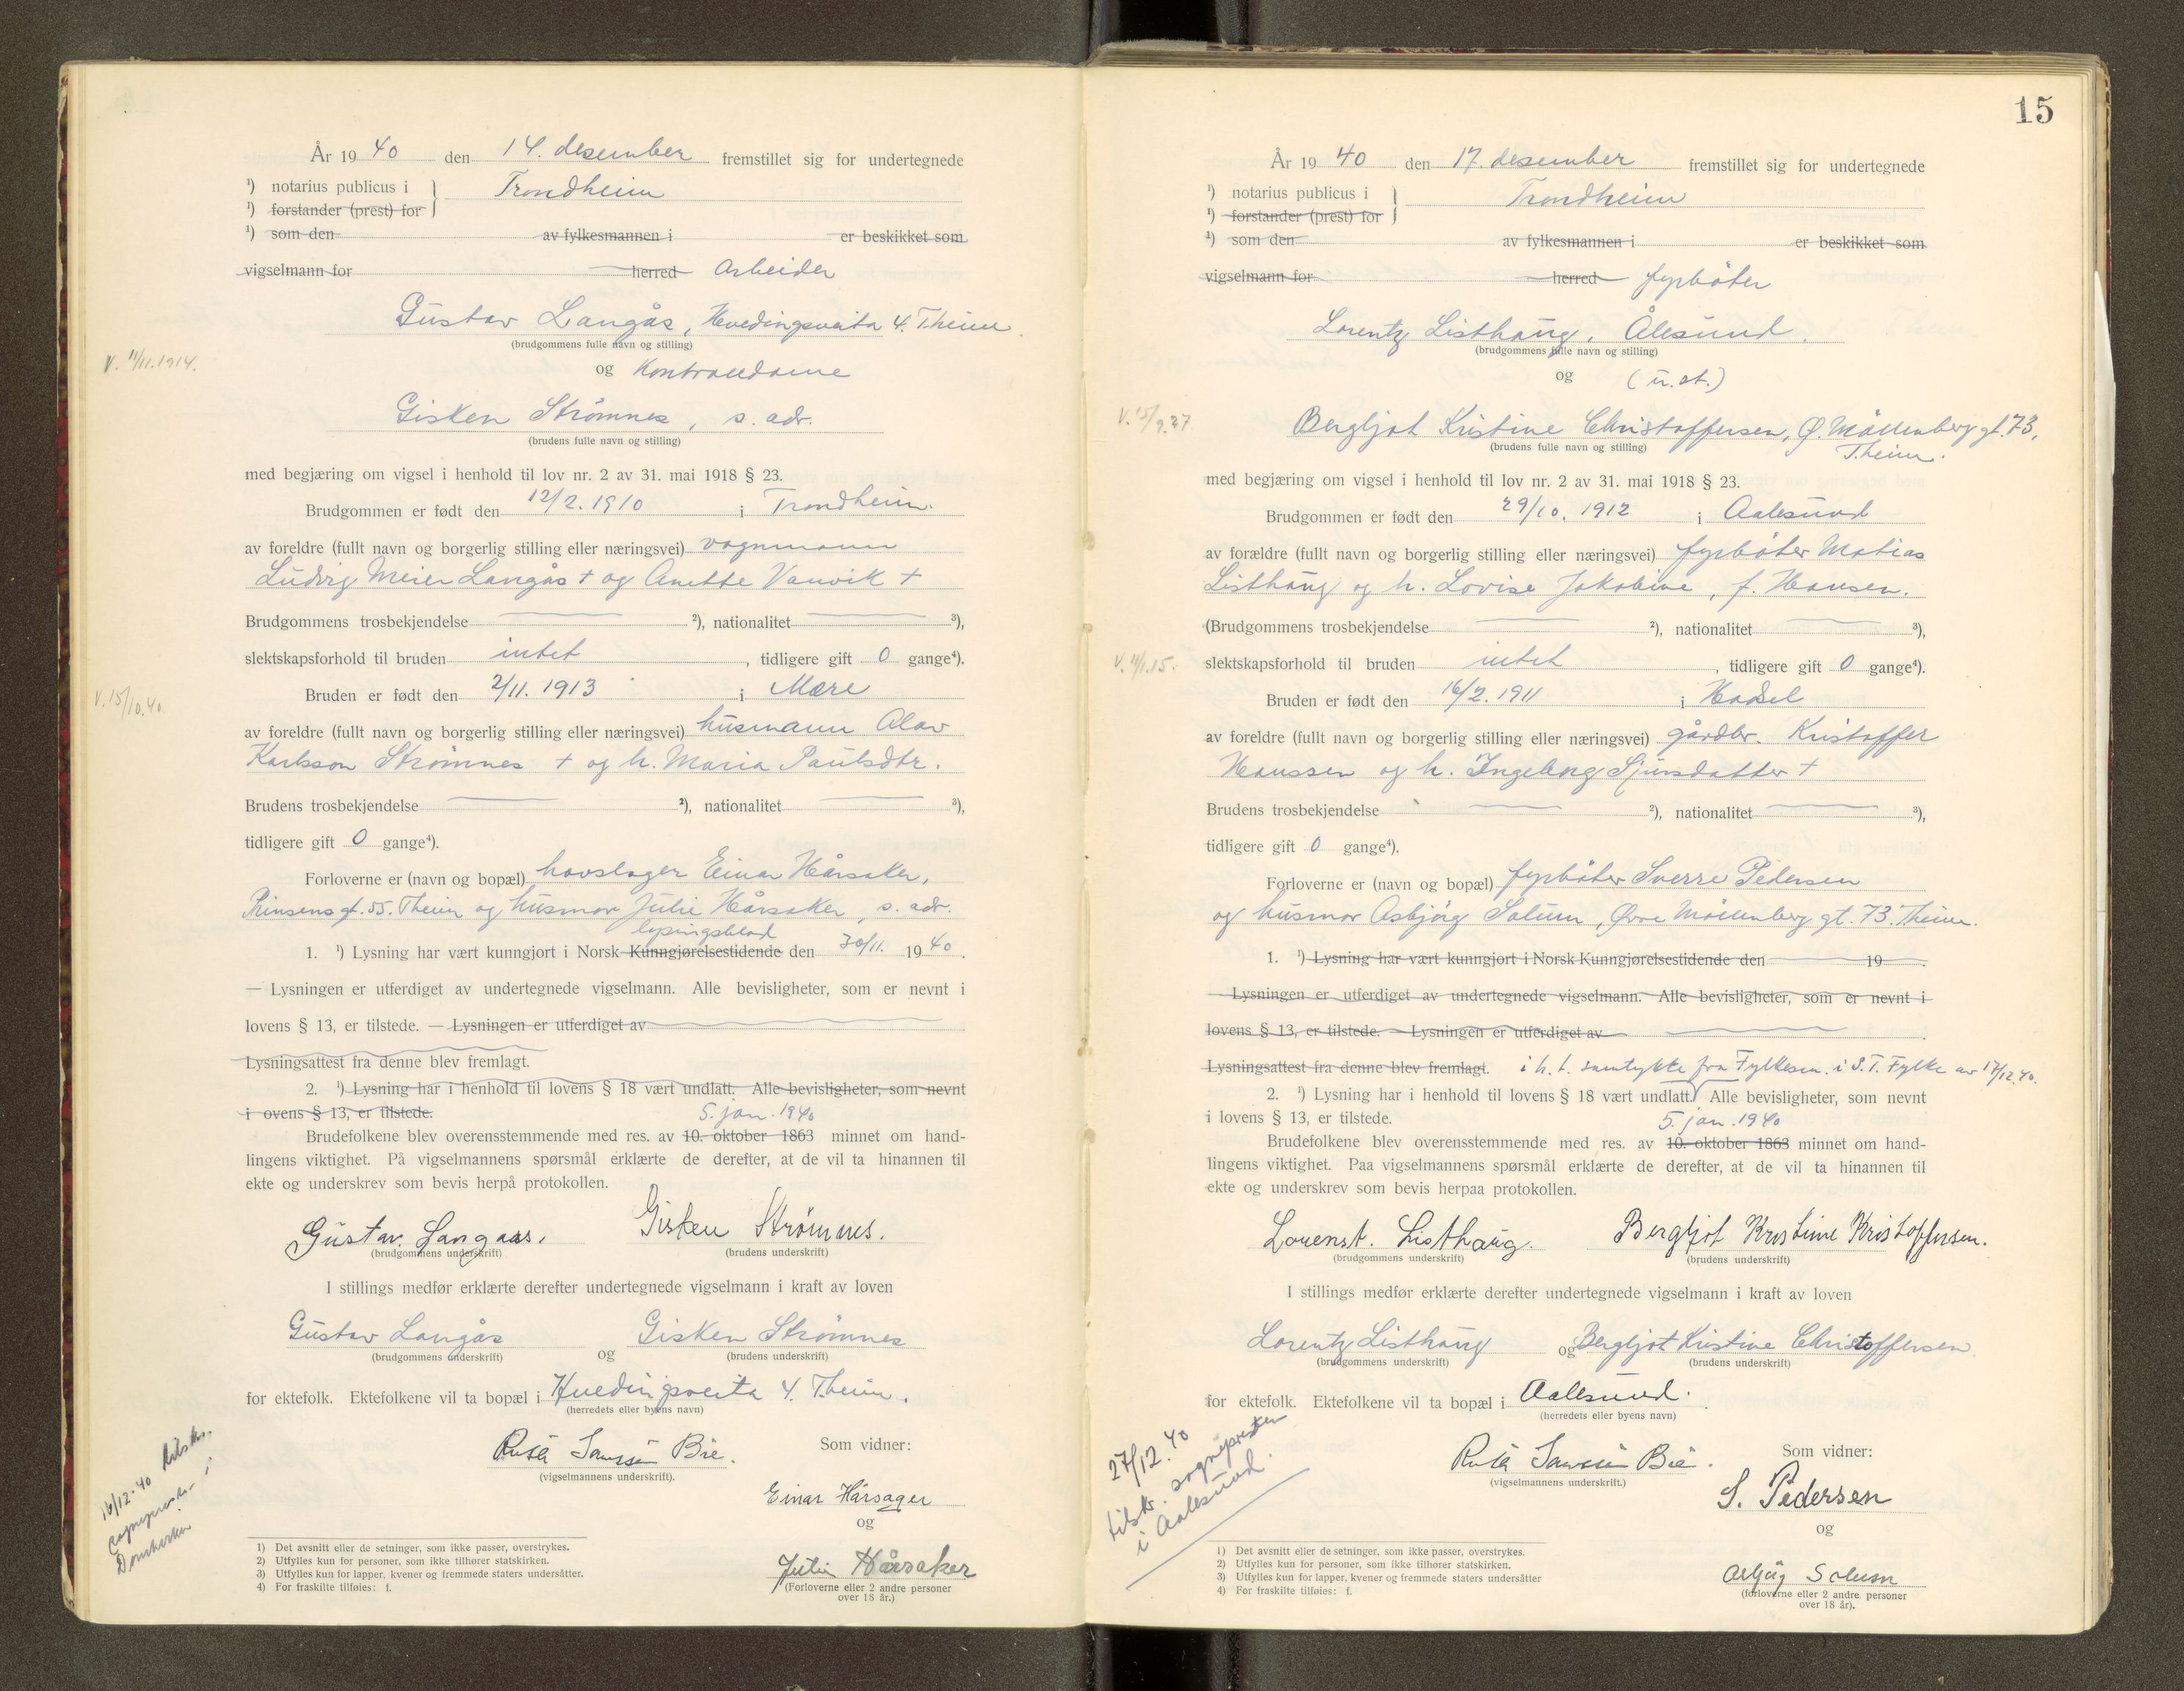 År 19 40 den 14. desember fremstillet sig for undertegnede
¹) notarius publicus i } Trondheim
¹) forstander (prest) for
¹) som den av fylkesmannen i er beskikket som
vigselmann for herred Arbeider
Gustav Langås, Hvedingsveita 4. T.heim.
(brudgommens fulle navn og stilling)
V. 11/11.1914.
og Kontrolldame
Gisken Strømnes, s. adr.
(brudens fulle navn og stilling)
med begjæring om vigsel i henhold til lov nr. 2 av 31. mai 1918 § 23.
Brudgommen er født den 12/2. 1910 i Trondheim.
av foreldre (fullt navn og borgerlig stilling eller næringsvei) vognmann
Ludvig Meier Langås + og Anette Vanvik +
Brudgommens trosbekjendelse ²), nationalitet ³),
slektskapsforhold til bruden intet, tidligere gift 0 gange⁴).
V. 15/10.40.
Bruden er født den 2/11. 1913 i Mære
av foreldre (fullt navn og borgerlig stilling eller næringsvei) husmann Olav
Karlsson Strømnes + og h. Maria Paulsdtr.
Brudens trosbekjendelse ²), nationalitet ³),
tidligere gift 0 gange⁴).
Forloverne er (navn og bopæl) hovslager Einar Hårsaker,
Prinsens gt. 55. T.heim og husmor Julie Hårsaker, s. adr.
lysingsblad
1. ¹) Lysning har vært kunngjort i Norsk Kunngjørelsestidende den 30/11. 19 40.
— Lysningen er utferdiget av undertegnede vigselmann. Alle bevisligheter, som er nevnt i
lovens § 13, er tilstede. — Lysningen er utferdiget av
Lysningsattest fra denne blev fremlagt.
2. ¹) Lysning har i henhold til lovens § 18 vært undlatt. Alle bevisligheter, som nevnt
i ovens § 13, er tilstede.
5. jan. 1940
Brudefolkene blev overensstemmende med res. av 10. oktober 1863 minnet om hand-
lingens viktighet. På vigselmannens spørsmål erklærte de derefter, at de vil ta hinannen til
ekte og underskrev som bevis herpå protokollen.
Gustav. Langaas. Gisken Strømnes.
(brudgommens underskrift) (brudens underskrift)
I stillings medfør erklærte derefter undertegnede vigselmann i kraft av loven
Gustav Langås og Gisken Strømnes
(brudgommens underskrift) (brudens underskrift)
for ektefolk. Ektefolkene vil ta bopæl i Hvedingsveita 4. T.heim.
(herredets eller byens navn)
Som vidner:
(vigselmannens underskrift).
Einar Hårsager
og
Julie Hårsaker
(Forloverne eller 2 andre personer
over 18 år.)
16/12-40 tilskr.
sognepresten i
Domkirken
1) Det avsnitt eller de setninger, som ikke passer, overstrykes.
2) Utfylles kun for personer, som ikke tilhører statskirken.
3) Utfylles kun for lapper, kvener og fremmede staters undersåtter.
4) For fraskilte tilføies: f.
15
År 19 40 den 17. desember fremstillet sig for undertegnede
¹) notarius publicus i } Trondheim
¹) forstander (prest) for
¹) som den av fylkesmannen i er beskikket som
vigselmann for herred fyrbøter
Lorentz Listhaug, Ålesund.
(brudgommens fulle navn og stilling)
og (u. st.)
V. 15/9.27
Bergljot Kristine Christoffersen, Ø. Møllenberg gt. 73,
T.heim.
(brudens fulle navn og stilling)
med begjæring om vigsel i henhold til lov nr. 2 av 31. mai 1918 § 23.
Brudgommen er født den 29/10. 1912 i Aalesund
av forældre (fullt navn og borgerlig stilling eller næringsvei) fyrbøter Matias
Listhaug og h. Lovise Jakobine, f. Hansen.
(Brudgommens trosbekjendelse ²), nationalitet ³),
V. 11/1.15.
slektskapsforhold til bruden intet, tidligere gift 0 gange⁴).
Bruden er født den 16/2. 1911 i Hadsel
av foreldre (fullt navn og borgerlig stilling eller næringsvei) gårdbr. Kristoffer
Hanssen og h. Ingeborg Sjursdatter +
Brudens trosbekjendelse ²), nationalitet ³),
tidligere gift 0 gange⁴).
Forloverne er (navn og bopæl) fyrbøter Sverre Pedersen
og husmor Asbjørg Solum, Øvre Møllenberg gt. 73. T.heim.
1. ¹) Lysning har vært kunngjort i Norsk Kunngjørelsestidende den 19 .
— Lysningen er utferdiget av undertegnede vigselmann. Alle bevisligheter, som er nevnt i
lovens § 13, er tilstede. — Lysningen er utferdiget av
Lysningsattest fra denne blev fremlagt. i h. t. samtykke fra Fylkesm. i S. T. Fylke av 17/12.40.
2. ¹) Lysning har i henhold til lovens § 18 vært undlatt. Alle bevisligheter, som nevnt
i lovens § 13, er tilstede.
5. jan. 1940
Brudefolkene blev overensstemmende med res. av 10. oktober 1863 minnet om hand-
lingens viktighet. Paa vigselmannens spørsmål erklærte de derefter, at de vil ta hinannen til
ekte og underskrev som bevis herpaa protokollen.
Lorenst. Listhaug. Bergljot Kristine Kristoffersen.
(brudgommens underskrift) (brudens underskrift)
I stillings medfør erklærte derefter undertegnede vigselmann i kraft av loven
Lorentz Listhaug og Bergljot Kristine Christoffersen
(brudgommens underskrift) (brudens underskrift)
for ektefolk. Ektefolkene vil ta bopæl i Aalesund.
(herredets eller byens navn)
Som vidner:
(vigselmannens underskrift.)
S. Pedersen
og
Asbjørg Solum
(forloverne eller 2 andre personer
over 18 år).
27/12.40
tilskr. sognepresten
i Aalesund.
1) Det avsnitt eller de setninger, som ikke passer, overstrykes.
2) Utfylles kun for personer, som ikke tilhører statskirken.
3) Utfylles kun for lapper, kvener og fremmede staters undersåtter
4) For fraskilte tilføies: f.